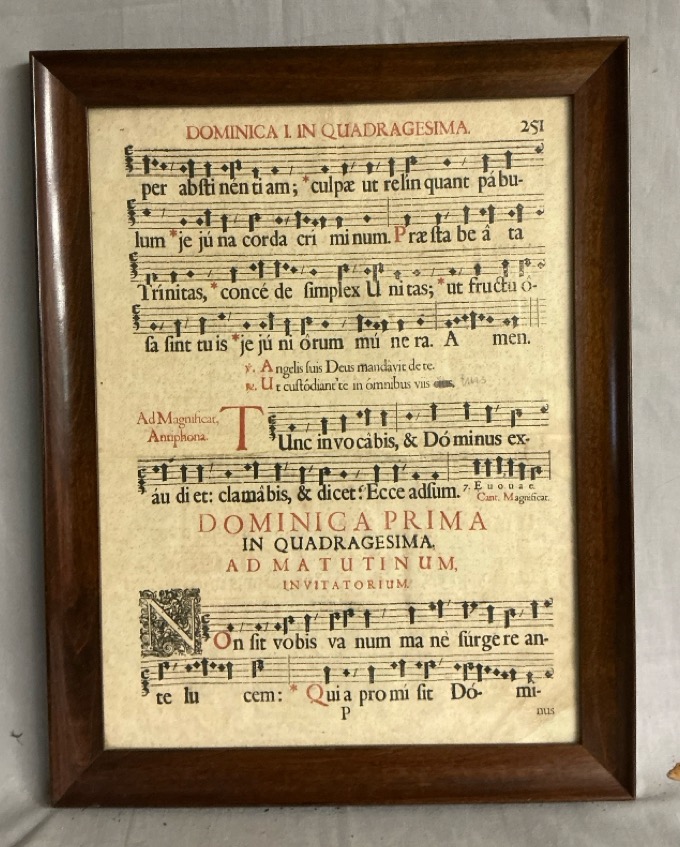 DOMINICA I. IN QUADRAGESIMA. 251
per absti nén ti am; *culpæ ut relin quant pá bu-
lum *je jú na corda cri minum. Præ sta be â ta
Trínitas, *concé de simplex U ni tas; *ut fructu ó-
sa sint tu is *je jú ni ôrum mú ne ra. A men.
℣. Angelis suis Deus mandàvit de te.
℟. Ut custódiant te in ómnibus viis tuis.
Ad Magnificat,
Antiphona.
TUnc in vo câbis, & Dó minus ex-
áu di et: clamâbis, & dicet: Ecce adsum. 7. E u o u a e.
Cant. Magnificat.
DOMINICA PRIMA
IN QUADRAGESIMA.
AD MATUTINUM,
INVITATORIUM.
NOn sit vobis va num ma nè súrgere an-
te lu cem: * Quia pro mi sit Dó- mi-
P nus